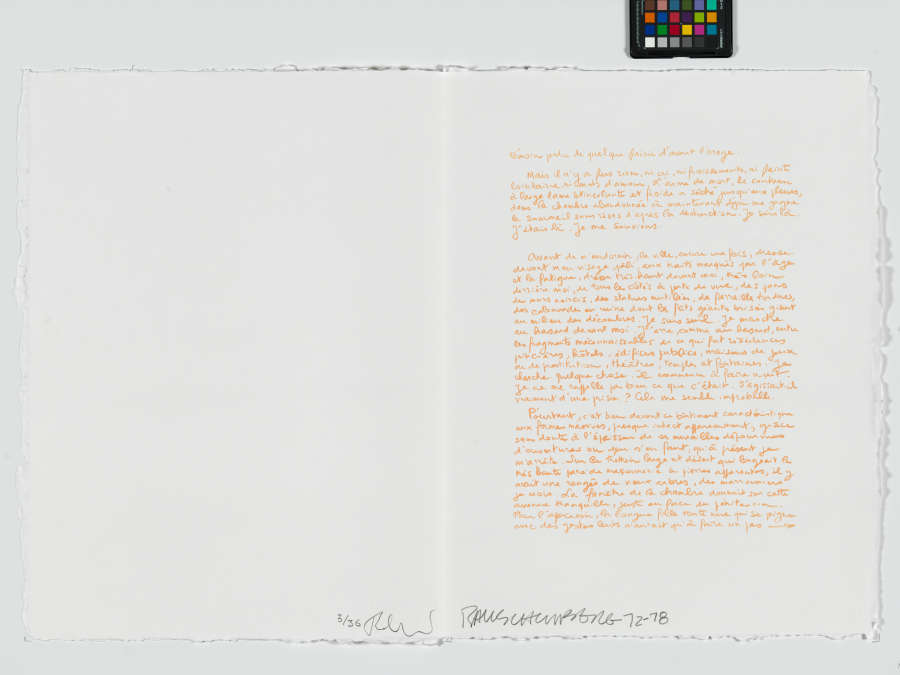 de quelque d'avant l'orage
Mais il n'y a plus rien, ni cri, ni
lointaine, ni mots d'amour. L'arme du mort, le
à large lame étincelante et froide a séché jusqu'aux
dans la chambre abandonnée où maintenant me gagne
le sommeil sans rêves d'après la destruction. Je suis là.
J'étais là. Je me souviens.
Avant de m'endormir, la ville, encore une fois, dresse
devant mon visage pâli, aux traits marqués par l'âge
et la fatigue, dresse très haut devant moi, très loin
derrière moi, de tous les côtés à perte de vue, des pans
de murs noircis, des statues mutilées, des ferrailles tordues,
des colonnades en ruine dont les fûts géants brisés gisent
au milieu des décombres. Je suis seul. Je marche
au hasard devant moi. J'erre, comme au hasard, entre
les fragments méconnaissables de ce qui fut résidences
princières, hôtels, édifices publics, maisons de jeux
ou de prostitution, théâtres, temples et fontaines. Je
cherche quelque chose. Il commence à faire nuit.
Je ne me rappelle pas bien ce que c'était. S'agissait-il
vraiment d'une prison ? Cela me semble improbable.
Pourtant, c'est bien devant ce bâtiment caractéristique
aux formes massives, presque intact apparemment, grâce
sans doute à l'épaisseur de ses murailles dépourvues
d'ouvertures ou peu s'en faut, qu'à présent je
m'arrête. Sur le trottoir large et désert que longeait la
très haute paroi de maçonnerie à pierres apparentes, il y
avait une rangée de vieux arbres, des marronniers
je crois. La fenêtre de la chambre donnait sur cette
avenue tranquille, juste en face du pénitencier.
la longue fille rousse qui se peigne
avec des gestes lents n'aurait qu'à faire un pas
3/36
RAUSCHENBERG 72-78